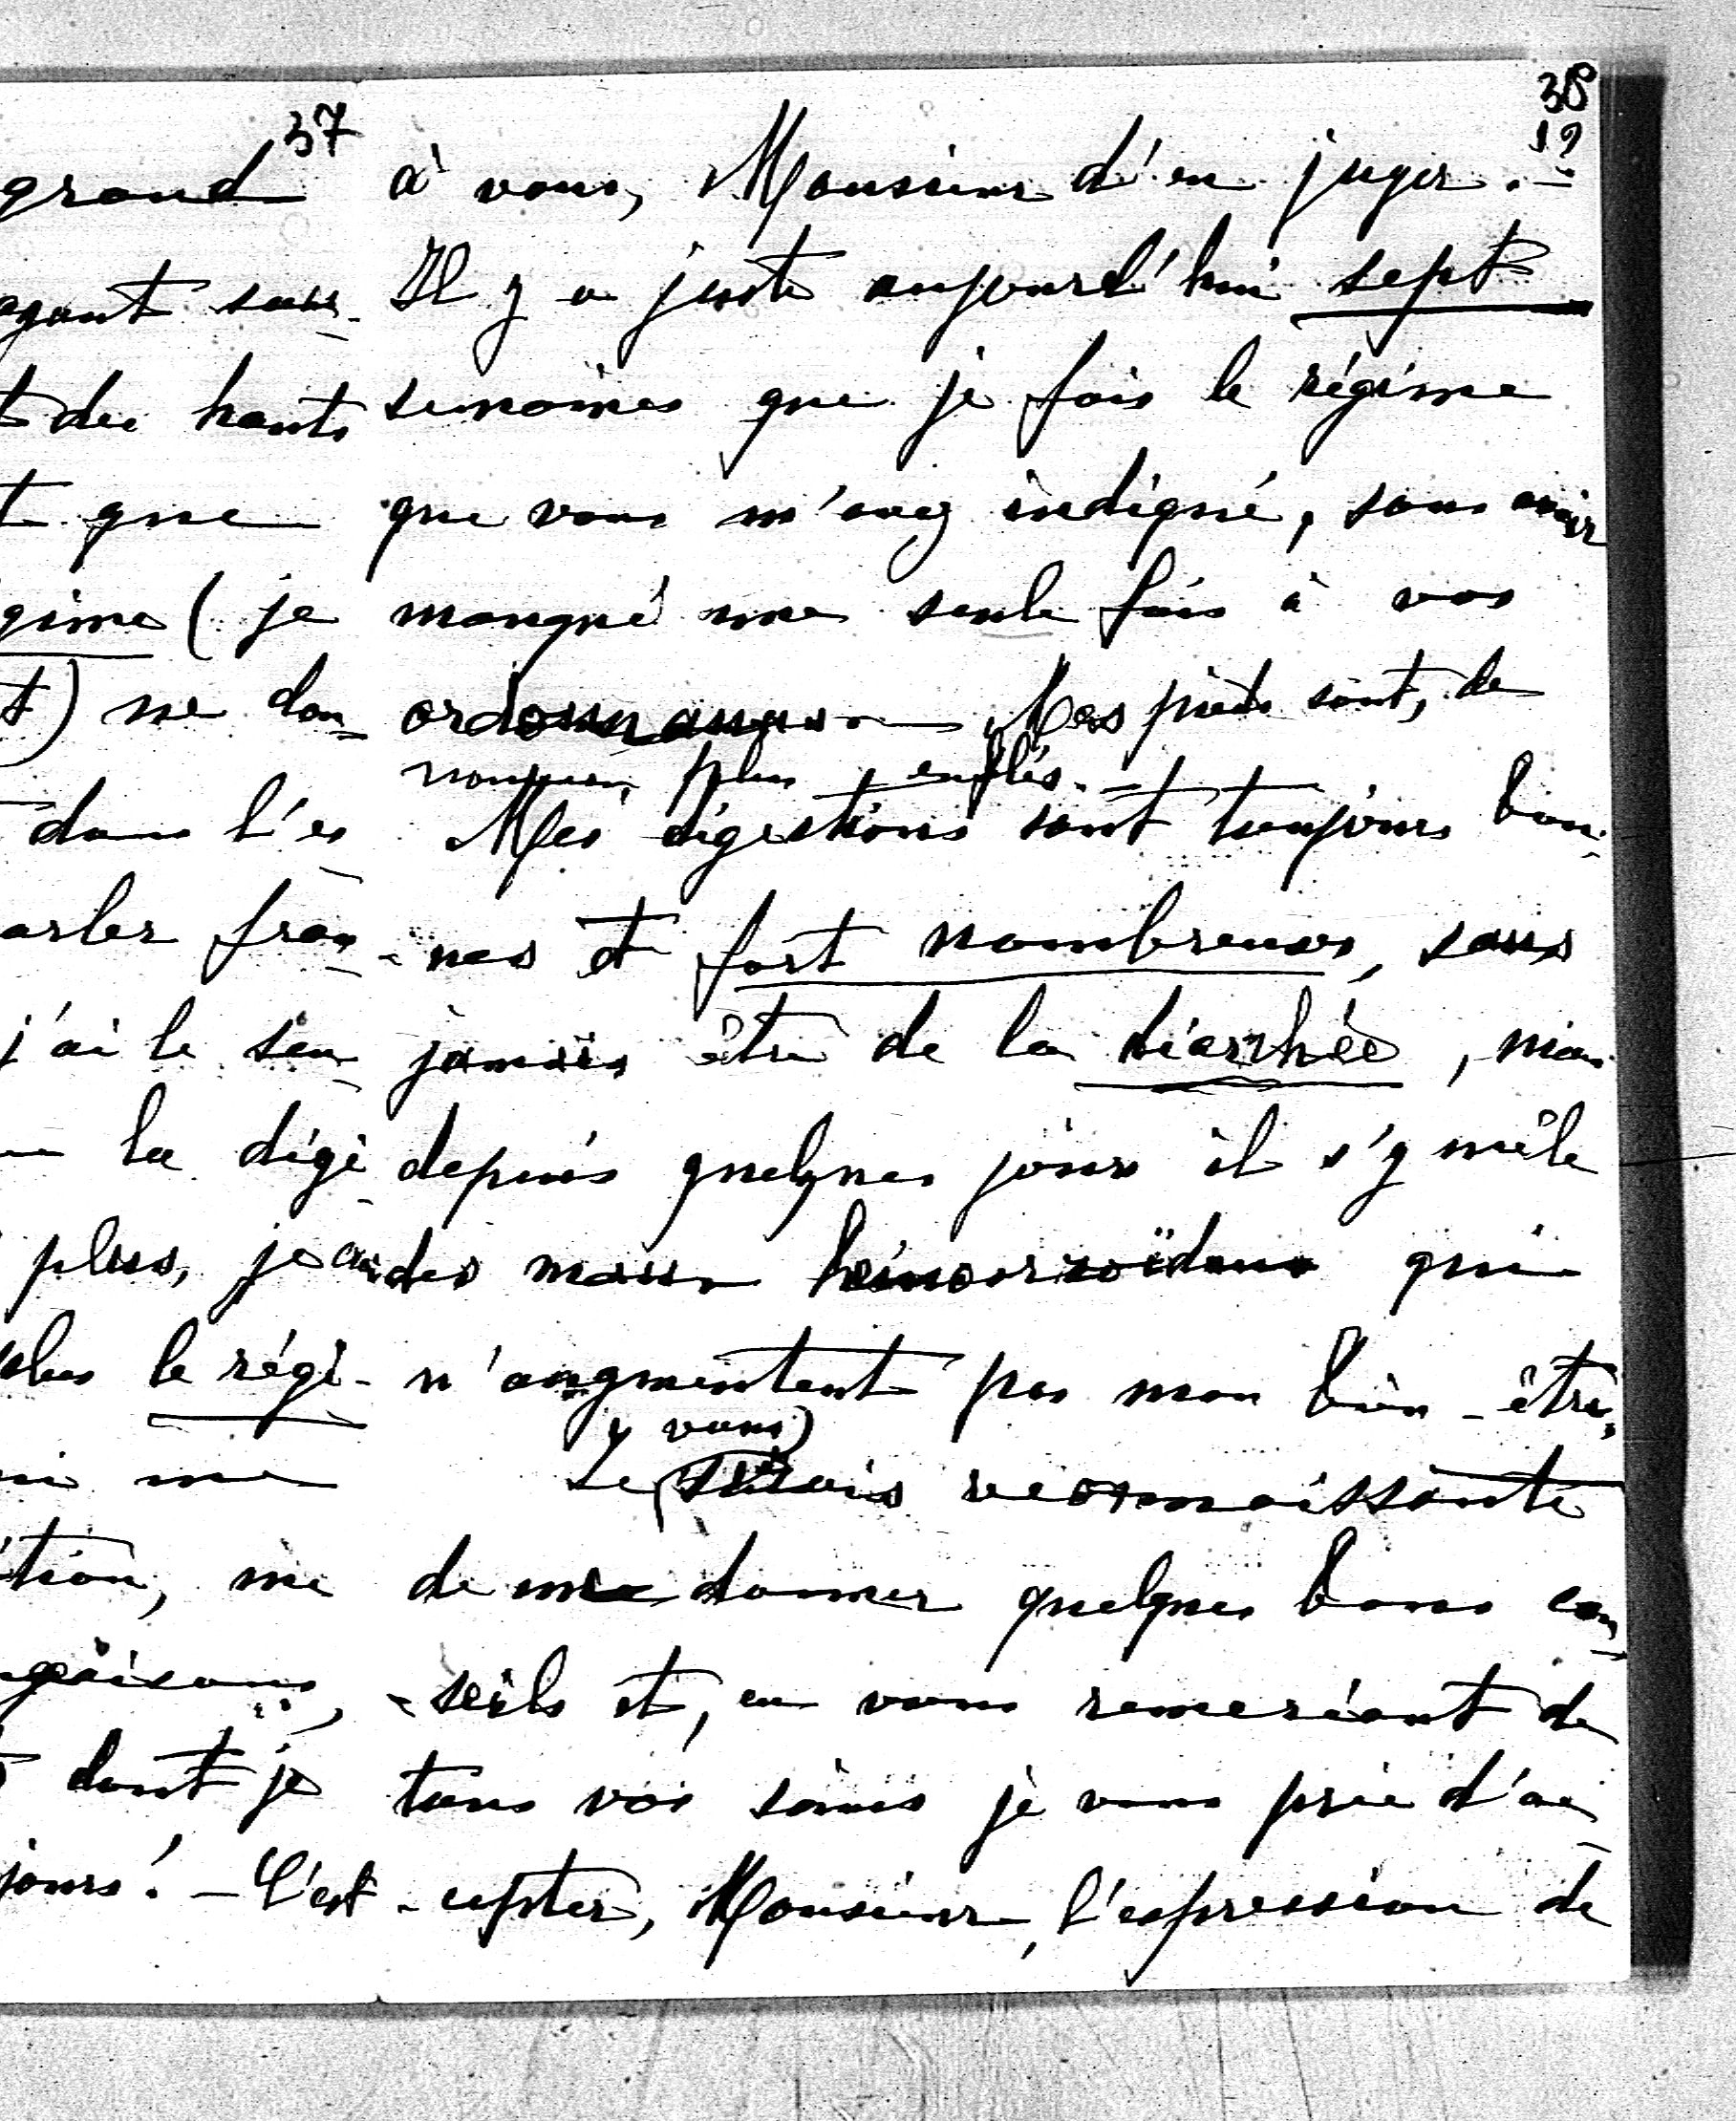 37
grand
ayant sous-
t des hauts
t que
gime (je
t) me don-
dans l'es
arler fran-
j'ai le sen-
la digè-
plus, je ai
plus le régi-
ni me
tion, me
dont je
jours! - C'est
38
19
à vous, Monsieur d'en juger. -
Il y a juste aujourd'hui sept
semaines que je fais le régime
que vous m'avez indiqué, sans avoir
manqué une seule fois à vos
ordonnances Mes pieds sont, de
nouveau, plus enflés. -
Mes digestions sont toujours bon-
-nes et fort nombreuses, sans
jamais être de la diarrhée, mais
depuis quelques jours il s'y mêle
des maux hémorroïdaux qui
n'augmentent pas mon bien-être.
y vous)
Je serais reconnaissante
de me donner quelques bons con-
-seils et, en vous remerciant de
tous vos soins je vous prie d'ac-
-cepter, Monsieur, l'expression de